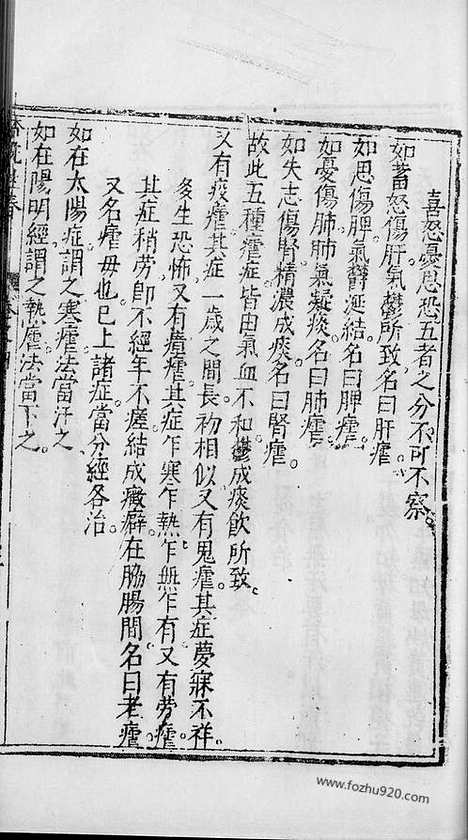 喜怒憂思恐五者之分不可不察
如蓄怒傷肝氣鬱所致名曰肝瘧
如思傷脾氣鬱涎結名曰脾瘧
如憂傷肺肺氣凝痰名曰肺瘧
如失志傷腎精濃成痰名曰腎瘧
故此五種瘧症皆由氣血不和鬱成痰飲所致
又有疫瘧其症一歲之間長初相似又有鬼瘧其症夢寐不祥
多生恐怖又有瘴瘧其症乍寒乍熱乍無乍有又有勞瘧
其症稍勞即不經年不瘥結成癥癖在脇腸間名曰老瘧
又名瘧母也已上諸症當分經各治
如在太陽症謂之寒瘧法當汗之
如在陽明經謂之熱瘧法當下之
www.fozhu920.com